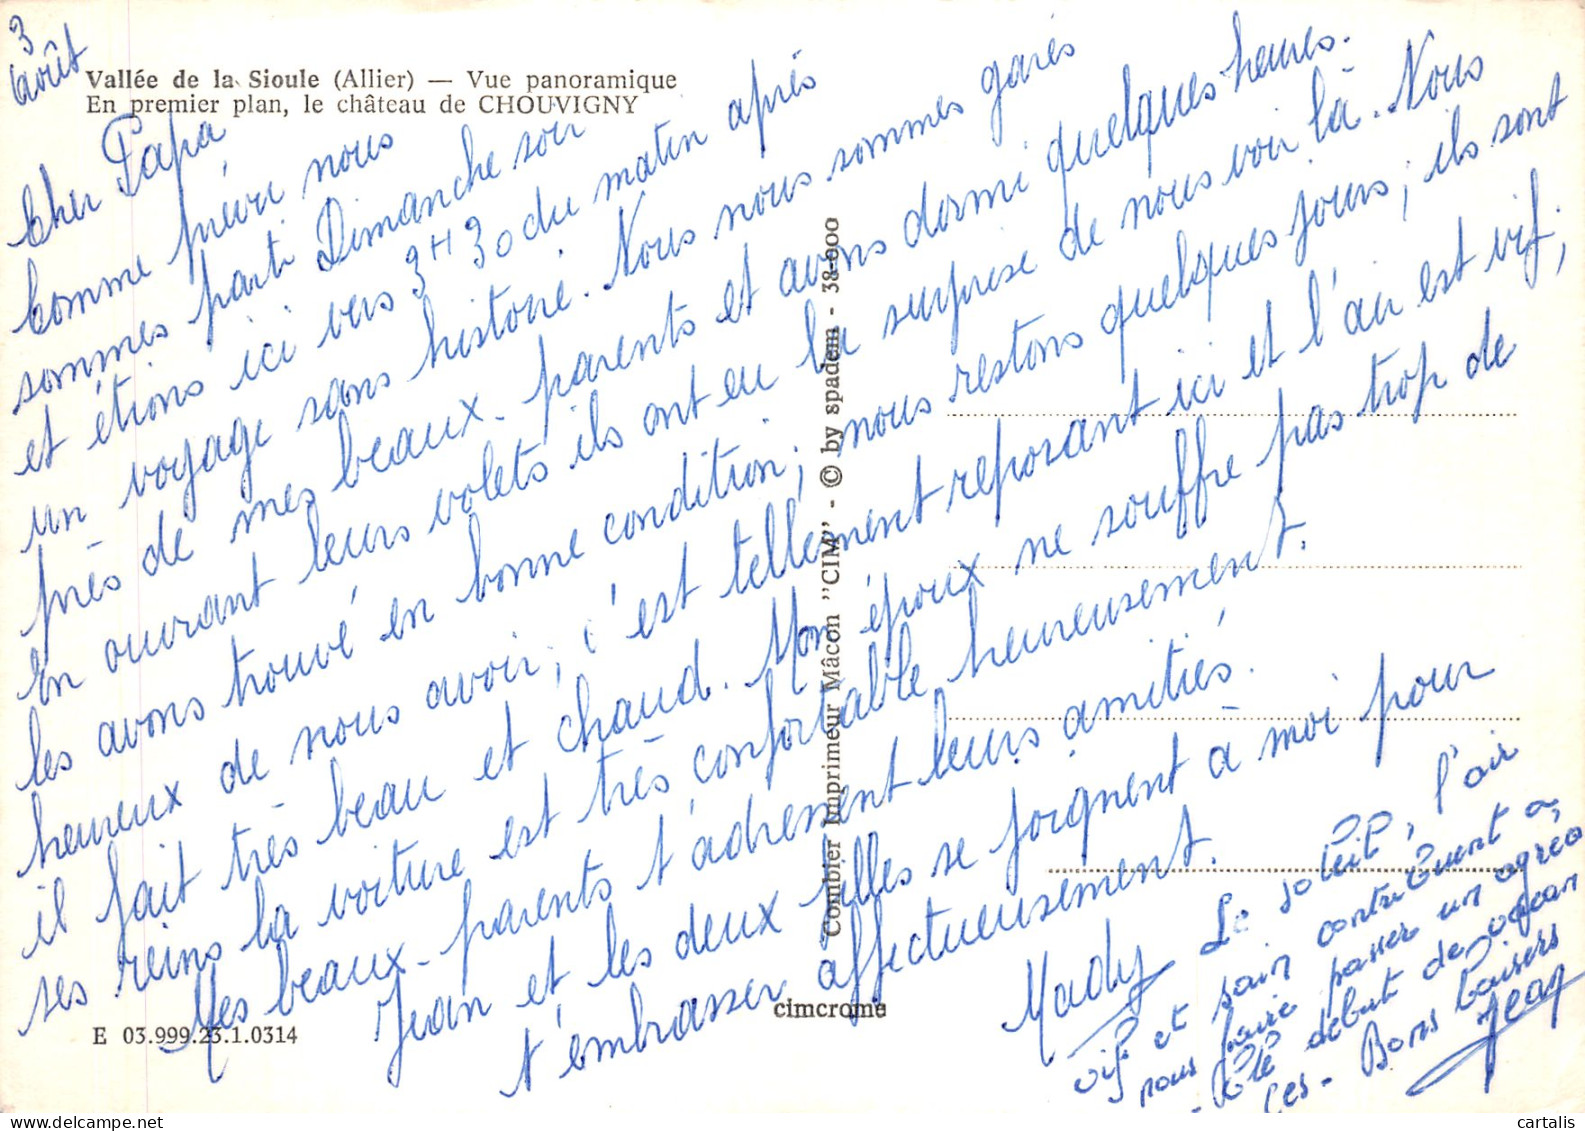 3
Août
Vallée de la Sioule (Allier) — Vue panoramique
En premier plan, le château de CHOUVIGNY
Cher Papa
Comme prévu nous
sommes parti Dimanche soir
et étions ici vers 3H30 du matin après
un voyage sans histoire. Nous nous sommes garés
près de mes beaux-parents et avons dormi quelques heures.
En ouvrant leurs volets ils ont eu la surprise de nous voir là. Nous
les avons trouvé en bonne condition; nous restons quelques jours; ils sont
heureux de nous avoir; c'est tellement reposant ici et l'air est vif;
il fait très beau et chaud. Mon époux ne souffre pas trop de
ses reins la voiture est très confortable heureusement.
Mes beaux-parents t'adressent leurs amitiés.
Jean et les deux filles se joignent à moi pour
t'embrasser affectueusement.
Mady
Le soleil, l'air
vif et sain contribuent à
nous faire passer un agréa
-ble début de vacan
ces - Bons baisers
Jean
Combier Imprimeur Mâcon "CIM" - © by spadem - 38-000
cimcrome
E 03.999.23.1.0314
cartalis